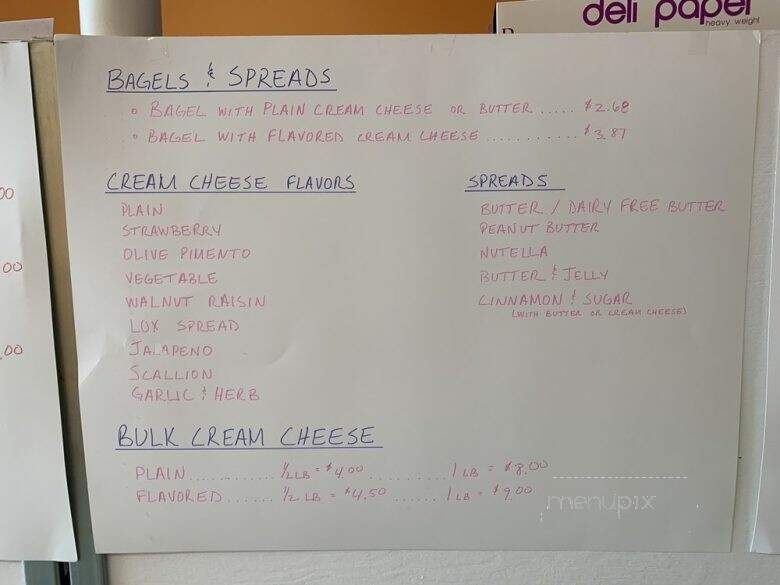 deli paper
heavy weight
BAGELS & SPREADS
• BAGEL WITH PLAIN CREAM CHEESE OR BUTTER ..... $2.68
• BAGEL WITH FLAVORED CREAM CHEESE ........... $3.87
CREAM CHEESE FLAVORS
PLAIN
STRAWBERRY
OLIVE PIMENTO
VEGETABLE
WALNUT RAISIN
LOX SPREAD
JALAPENO
SCALLION
GARLIC & HERB
SPREADS
BUTTER / DAIRY FREE BUTTER
PEANUT BUTTER
NUTELLA
BUTTER & JELLY
CINNAMON & SUGAR
(WITH BUTTER OR CREAM CHEESE)
BULK CREAM CHEESE
PLAIN .......... ½ LB = $4.00 ........ 1 LB = $8.00
FLAVORED ...... ½ LB = $4.50 ...... 1 LB = $9.00
menupix
00
00
.00